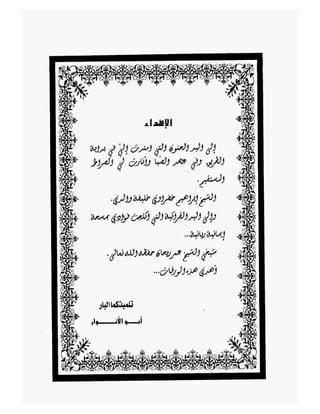 الإهداء
إلى اليد الحنون التي امتدت إليّ في بداية
الطريق وفي عهد الصبا وأنارت لي الصراط
المستقيم.
الشيخ إبراهيم خضراوي خليفة والدي.
وإلى اليد القرآنية التي أكملت فؤادي بمسحة
إيمانية ربانية...
شيخي الشيخ عمر حفظه الله تعالى.
أهدي هذه الورقات...
تلميذكما البار
أبو الأنوار